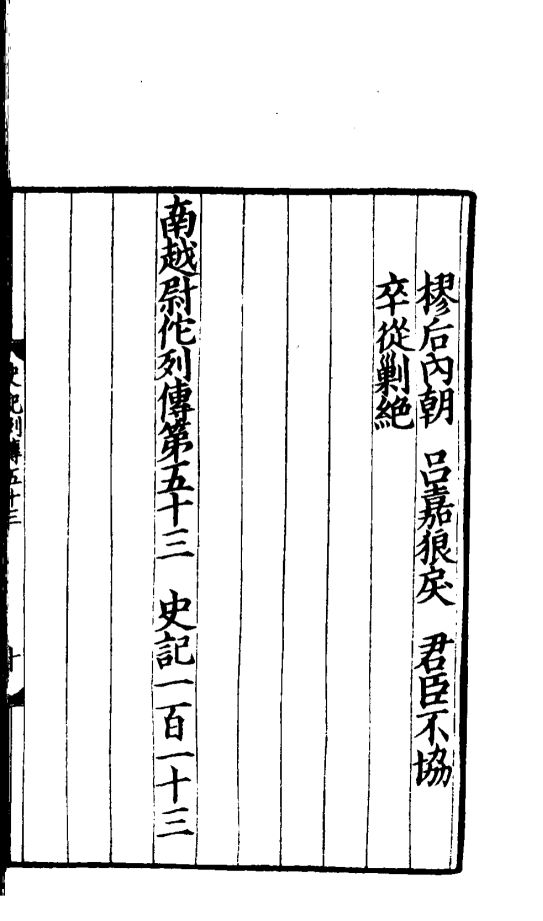 樛后內朝　呂嘉狼戾　君臣不協
卒從剿絕
南越尉佗列傳第五十三　史記一百一十三
史記列傳五十三